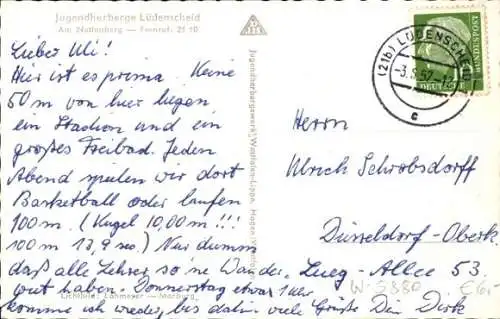 Jugendherberge Lüdenscheid
Am Nattenberg — Fernruf: 21 10
Lieber Uli!
Hier ist es prima. Keine
50 m von hier liegen
ein Stadion und ein
großes Freibad. Jeden
Abend spielen wir dort
Basketball oder laufen
100 m. (Kugel 10,00 m!!!
100 m 13,9 sec.) Nur dumm
daß alle Lehrer so'ne Wander-
wut haben. Donnerstag etwa 1 Uhr
komme ich wieder, bis dahin viele Grüße Dein Dirk
Lichtbild: Lahmeyer — Marburg
Jugendherbergswerk Westfalen-Lippe, Hagen/Westf.
(21b) LÜDENSCHEID
-3.6.57-12
c
DEUTSCHE
BUNDESPOST
Herrn
Ulrich Schrobsdorff
Düsseldorf-Oberk.
Lueg-Allee 53.
W-5880